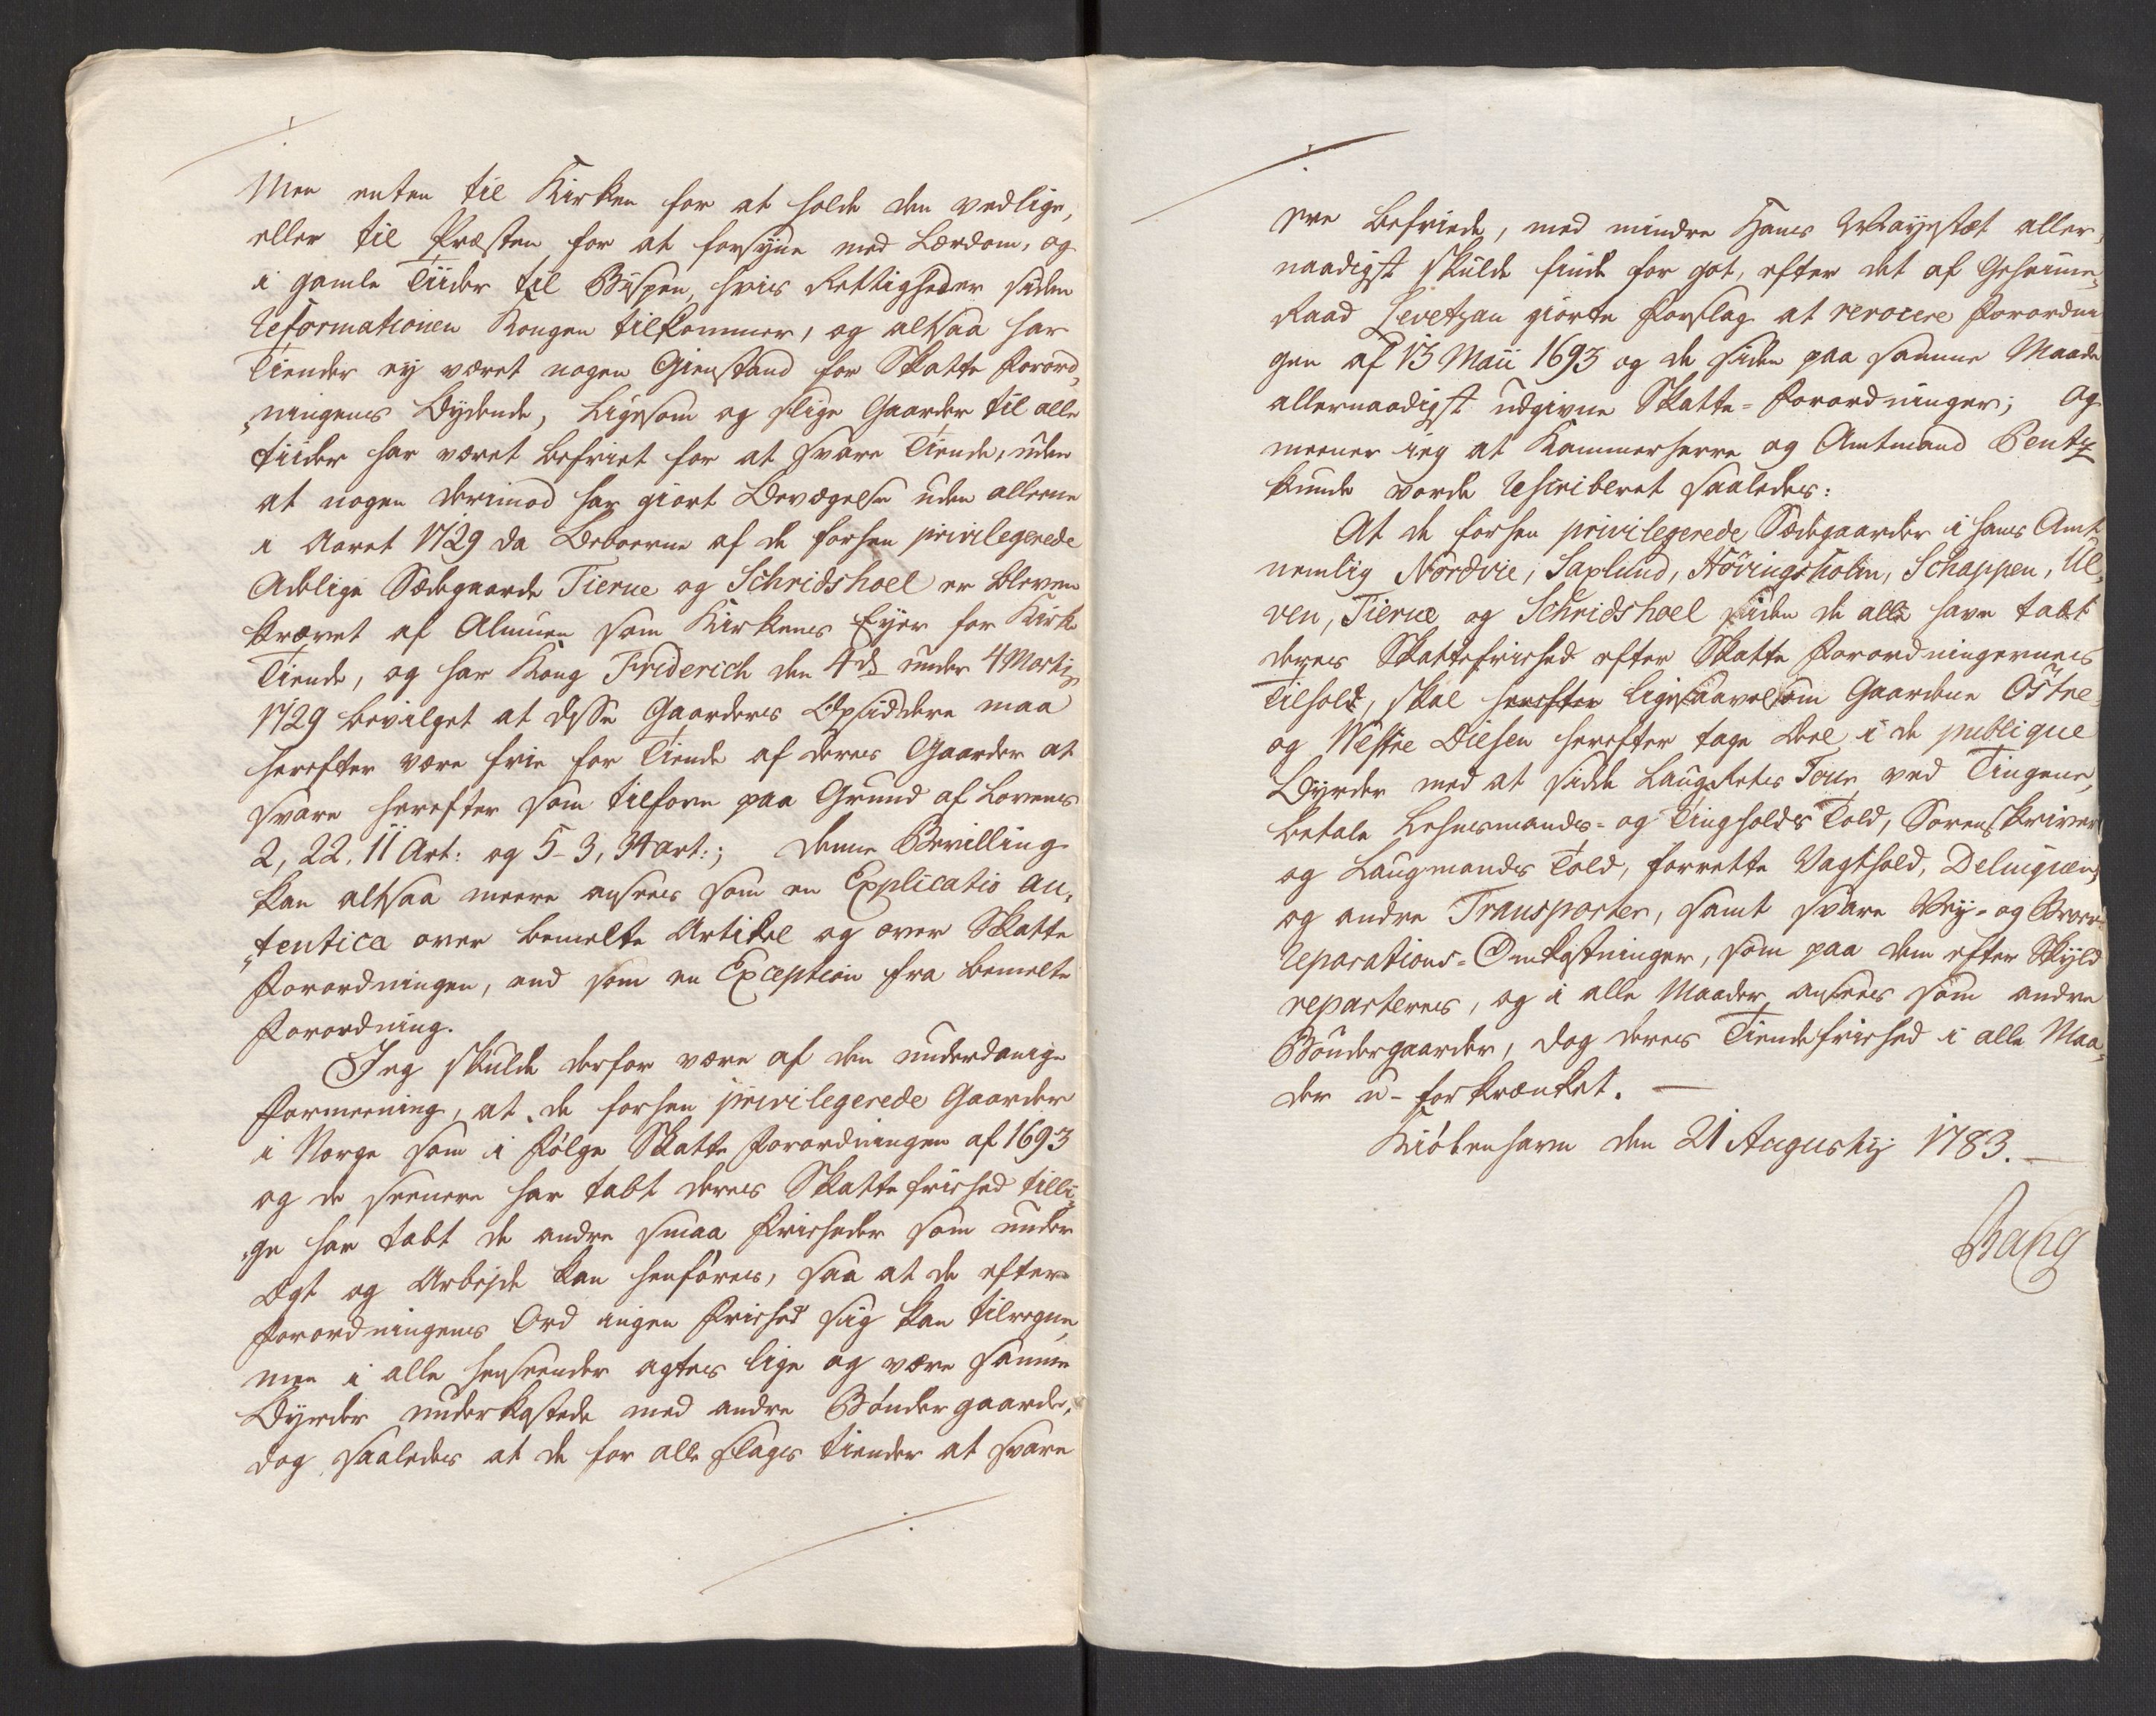 Men enten til Kirken for at holde den vedlige,
eller til Præsten for at forsyne med Lærdom, og
i gamle Tiider til Bispen, hvis Rettigheder siden
Reformationen Kongen tilkommer, og altsaa har
Tiender ey været nogen Gienstand for Skatte Forord„
„ningens Bydende, Ligesom og slige Gaarder til alle
tiider har været befriet for at svare Tiende, uden
at nogen derimod har giort Bevægelse uden alleene
i Aaret 1729 da Beboerne af de forhen privilegerede
Adelige Sædegaarde Tierne og Schridshoel er bleven
krævet af Almuen som Kirkens Eyer for Kirke
Tiende, og har Kong Friderich den 4de under 4 Martij
1729 bevilget at disse Gaarders Opsiddere maa
herefter være frie for Tiende af deres Gaarder at
svare herefter som tilforn paa Grund af Lovens
2, 22. 11 Art: og 5-3, 34 art:; denne Bevilling
kan altsaa meere ansees som en Explicatio au„
„tentica over bemelte Artikel og over Skatte
Forordningen, end som en Exception fra bemelte
Forordning.
Jeg skulde derfor være af den underdanige
Formeening, at de forhen privilegerede Gaarder
i Norge som i Følge Skatte Forordningen af 1693
og de seenere har tabt deres Skatte friehed tilli„
„ge har tabt de andre smaa Friheder som under
Ægt og Arbejde kan henføres, saa at de efter
Forordningens Ord ingen Friehed sig kan tilregne,
men i alle henseender agtes lige og være samme
Byrder underkastede med andre Bønder gaarde,
dog saaledes at de for alle slags tiender at svare
ere befriede, med mindre Hans Mayestæt aller„
naadigst skulde finde for got, efter det af Geheime„
Raad Levetzau giorte Forslag at revocere Forordnin
gen af 13 Maii 1693 og de siden paa samme Maade
allernaadigst udgivne Skatte-Forordninger; Og
meener jeg at Kammerherre og Amtmand Pentz
kunde vorde rescriberet saaledes:
At de forhen privilegerede Sædegaarder i hans Amt
nemlig Nordvie, Saxlund, Høvingsholm, Schappen, Ul„
ven, Tierne og Schridshoel siden de alle have tabt
deres Skattefriehed efter Skatte Forordningernes
Tilhold, skal herefter ligesaavelsom Gaardene Østre
og Westre Diesen herefter tage Deel i de publique
Byrder med at sidde Laug Retes Tour ved Tingene,
betale Lehnsmands- og Tingholds Told, Sorenskriver
og Laugmands Told, forrette Vagthold, Delinqven„
og andre Transporter, samt svare Vey- og Broe-
Reparations-Omkostninger, som paa dem efter Skyld
reparteres, og i alle Maader ansees som andre
Bøndergaarder, dog deres Tiendefriehed i alle Maa„
der u-forkrænket. —
Kiøbenhavn den 21 Augustij 1783. —
Bang